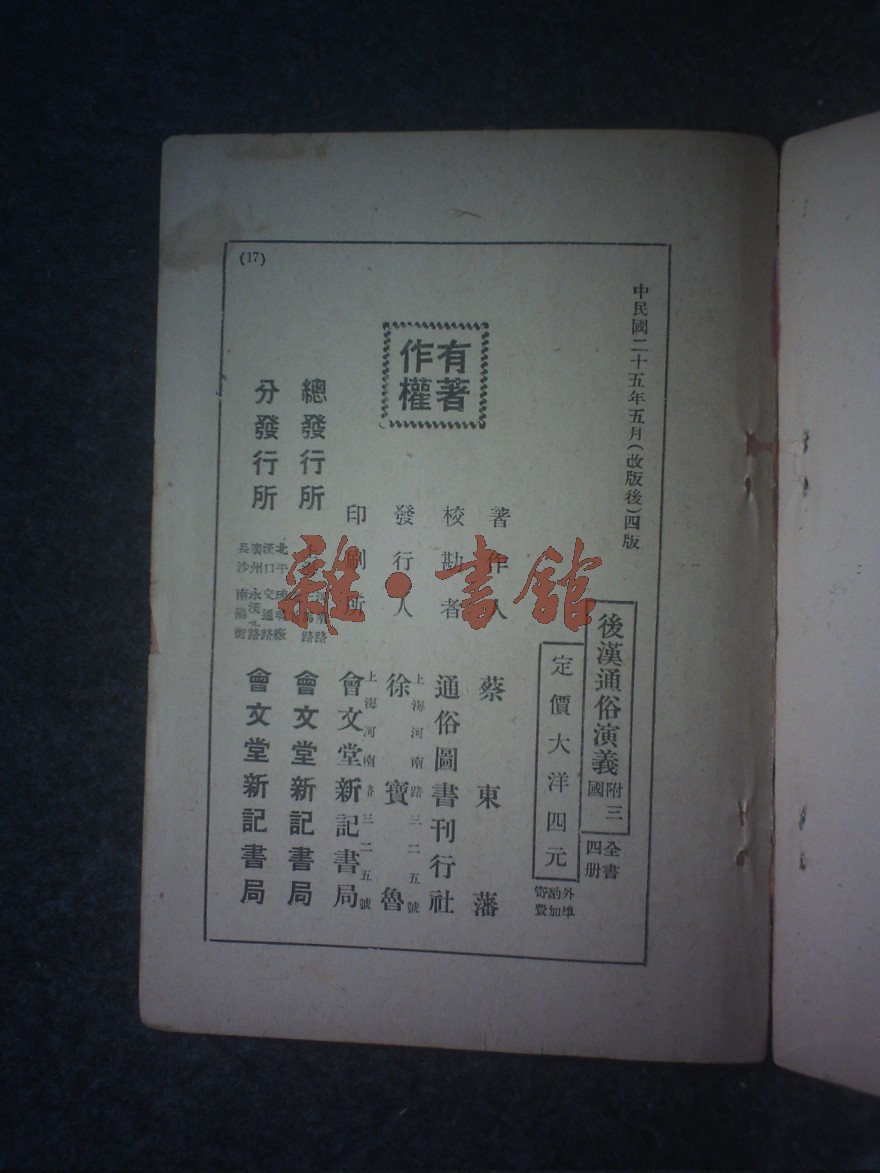 中民國二十五年五月(改版後)四版
後漢通俗演義附三國
全書四册
定價大洋四元
外埠酌加寄費
著作人 蔡東藩
校勘者 通俗圖書刊行社
發行人 徐寶魯
上海河南路三二五號
印刷所 會文堂新記書局
上海河南路三二五號
總發行所 會文堂新記書局
分發行所
北平
漢口 交通路
廣州 永漢路
長沙 南陽街
會文堂新記書局
有著作權
(17)
雜·書館